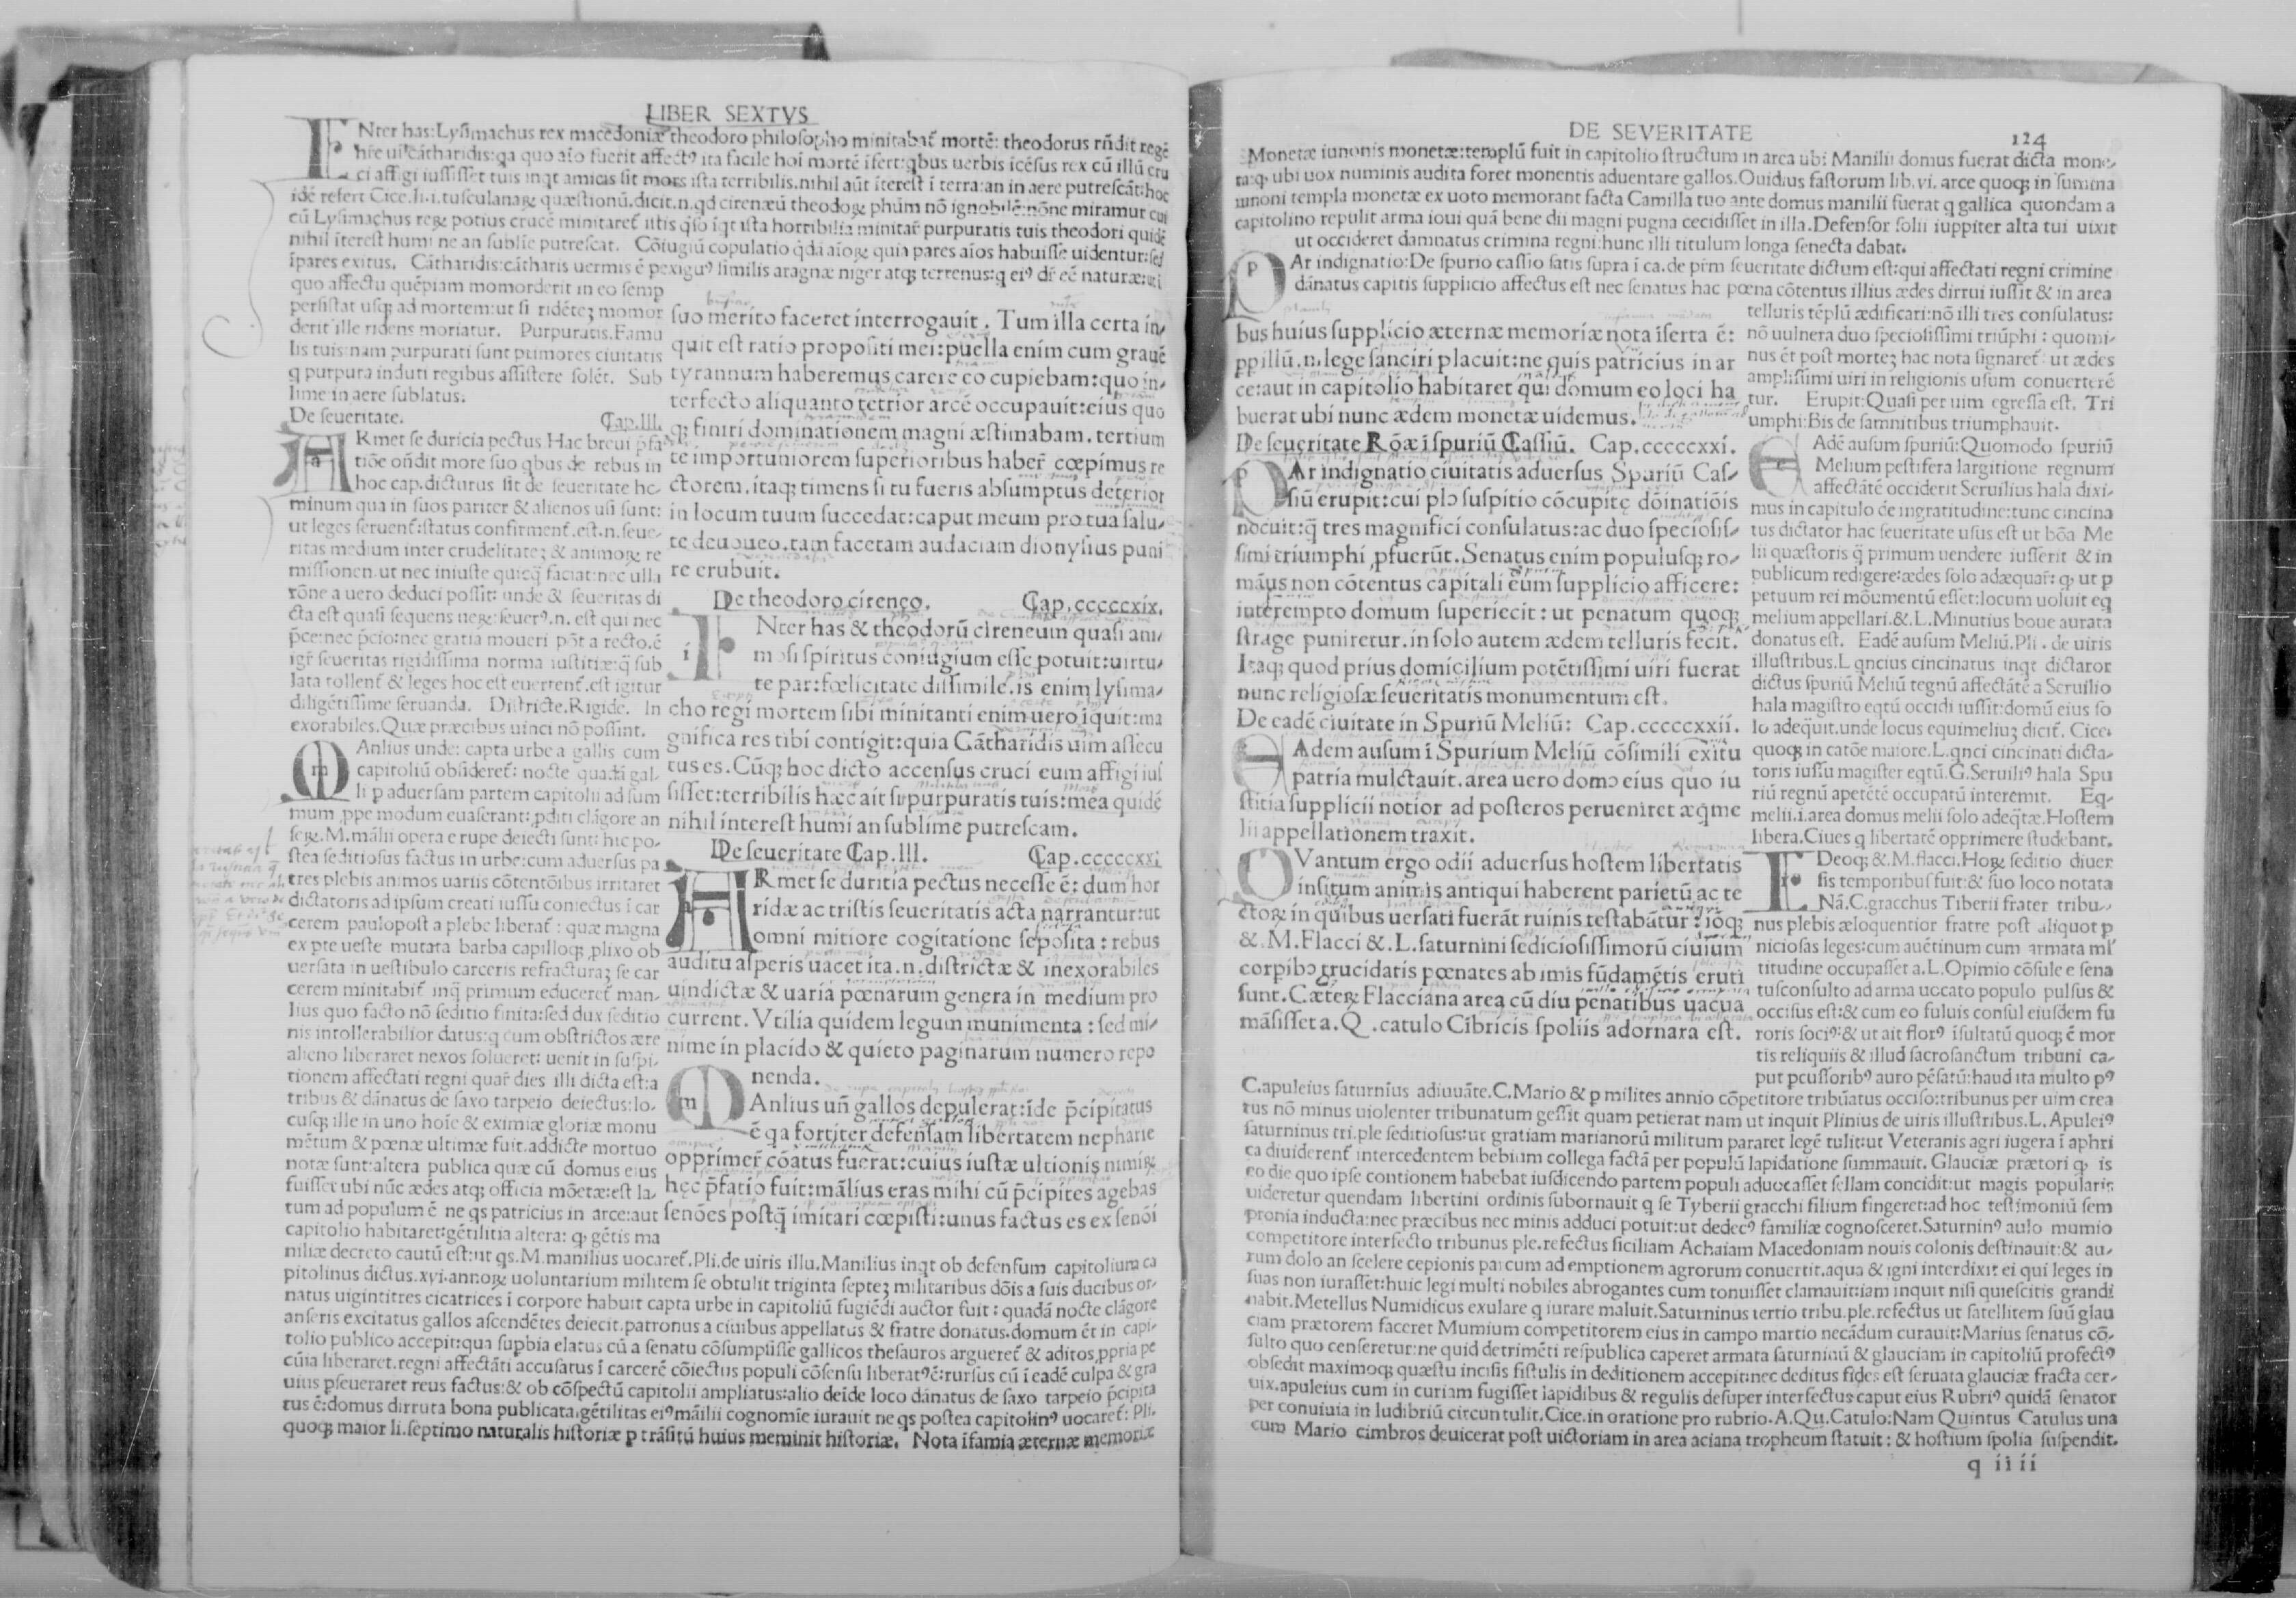 LIBER SEXTVS
INter has: Lysimachus rex macedoniæ theodoro philosopho minitabat᷑ mortē: theodorus rñdit regē
hr̃e uī cātharidis: qa quo aīo fuerit affectꝰ ita facile hoi mortē īfert: qbus uerbis icēsus rex cū illū cru
ci affigi iussisset tuis inqt amicis sit mors ista terribilis. nihil aūt īterest ī terra: an in aere putrescāt: hoc
idē refert Cice. li. i. tusculanaꝝ quæstionū. dicit. n. qd cirenæū theodoꝝ phūm nō ignobilē: nōne miramur cui
cū Lysimachus rex potius crucē minitaret᷑ istis q̄so īqt ista horribilia minitar̄ purpuratis tuis theodori quidē
nihil īterest humi ne an sublie putrescat. Cōiugiū copulatio q̄dā aīoꝝ quia pares aīos habuisse uidentur: sed
īpares exitus. Cātharidis: cātharis uermis ē pexiguꝰ similis aragnæ niger atqꝫ terrenus: q eiꝰ dr̄ eē naturæ: ut ī
quo affectu quēpiam momorderit in eo semp
persistat usqꝫ ad mortem: ut si ridēteꝫ momor
derit ille ridens moriatur. Purpuratis. Famu
lis tuis: nam purpurati sunt primores ciuitatis
q purpura induti regibus assistere solēt. Sub
lime in aere sublatus.
De seueritate. Cap. III.
ARmet se duricia pectus. Hac breui p̄fa
tiōe oñdit more suo qbus de rebus in
hoc cap. dicturus sit de seueritate ho
minum qua in suos pariter & alienos usi sunt:
ut leges seruent᷑: status confirment᷑. est. n. seue
ritas medium inter crudelitateꝫ & animoꝝ re
missionem. ut nec iniuste quicq̄ faciat: nec ulla
rōne a uero deduci possit: unde & seueritas di
cta est quasi sequens neꝝ: seuerꝰ. n. est qui nec
p̄ce: nec p̄cio: nec gratia moueri pōt a recto. ē
igr̄ seueritas rigidissima norma iustitiæ: q̄ sub
lata tollent᷑ & leges hoc est euertent᷑. est igitur
diligētissime seruanda. Districte. Rigide. In
exorabiles. Quæ præcibus uinci nō possint.
MAnlius unde: capta urbe a gallis cum
capitoliū obsideret᷑: nocte quadā gal-
li p aduersam partem capitolii ad sum
mum ꝓpe modum euaserant: ꝓditi clāgore an
seꝝ. M. mālii opera e rupe deiecti sunt: hic po-
stea seditiosus factus in urbe: cum aduersus pa
tres plebis animos uariis cōtentōibus irritaret
dictatoris ad ipsum creati iussu coniectus ī car
cerem paulopost a plebe liberat᷑: quæ magna
ex pte ueste mutata barba capilloqꝫ ꝓlixo ob
uersata in uestibulo carceris refracturaꝫ se car
cerem minitabit᷑ inq̄ primum educeret᷑ man-
lius quo facto nō seditio finita: sed dux seditio
nis intollerabilior datus: q cum obstrictos ære
alieno liberaret nexos solueret: uenit in suspi-
tionem affectati regni quar̄ dies illi dicta est: a
tribus & dānatus de saxo tarpeio deiectus: lo-
cusqꝫ ille in uno hoīe & eximiæ gloriæ monu
mētum & pœnæ ultimæ fuit. addicte mortuo
notæ sunt: altera publica quæ cū domus eius
fuisset ubi nūc ædes atqꝫ officia mōetæ: est la-
tum ad populum ē ne qs patricius in arce: aut
capitolio habitaret: gētilitia altera: q, gētis ma
niliæ decreto cautū est: ut qs. M. manilius uocaret᷑. Pli. de uiris illu. Manilius inqt ob defensum capitolium ca
pitolinus dictus. xvi. annoꝝ uoluntarium militem se obtulit triginta septeꝫ militaribus dōis a suis ducibus or-
natus uigintitres cicatrices ī corpore habuit capta urbe in capitoliū fugiēdi auctor fuit: quadā nocte clāgore
anseris excitatus gallos ascendētes deiecit. patronus a ciuibus appellatus & fratre donatus. domum ēt in capi-
tolio publico accepit: qua supbia elatus cū a senatu cōsumpsisse gallicos thesauros argueret᷑ & aditos ꝓpria pe
cūia liberaret. regni affectāti accusatus ī carcerē cōiectus populi cōsensu liberatꝰē: rursus cū ī eadē culpa & gra
uius pseueraret reus factus: & ob cōspectū capitolii ampliatus: alio deīde loco dānatus de saxo tarpeio p̄cipita
tus ē: domus dirruta bona publicata. gētilitas eiꝰ māilii cognomīe iurauit ne qs postea capitolinꝰ uocaret᷑: Pli.
quoqꝫ maior li. septimo naturalis historiæ p trāsitū huius meminit historiæ. Nota īfamia æternæ memoriæ
suo merito faceret interrogauit. Tum illa certa in-
quit est ratio propositi mei: puella enim cum grauē
tyrannum haberemus carere eo cupiebam: quo in-
terfecto aliquanto tetrior arcē occupauit: eius quo
qꝫ finiri dominationem magni æstimabam. tertium
te importuniorem superioribus haber̄ cœpimus re
ctorem. itaqꝫ timens si tu fueris absumptus deterior
in locum tuum succedat: caput meum pro tua salu-
te deuoueo. tam facetam audaciam dionysius puni
re erubuit.
De theodoro cireneo. Cap. cccccxix.
INter has & theodorū cireneum quasi ani-
mosi spiritus coniugium esse potuit: uirtu-
te par: fœlicitate dissimile. is enim lysima-
cho regi mortem sibi minitanti enim uero īquit: ma
gnifica res tibi contigit: quia Cātharidis uim assecu
tus es. Cūqꝫ hoc dicto accensus cruci eum affigi ius
sisset: terribilis hæc ait sit purpuratis tuis: mea quidē
nihil interest humi an sublime putrescam.
De seueritate Cap. III. Cap. cccccxxi
ARmet se duritia pectus necesse ē: dum hor
ridæ ac tristis seueritatis acta narrantur: ut
omni mitiore cogitatione seposita: rebus
auditu asperis uacet ita. n. districtæ & inexorabiles
uindictæ & uaria pœnarum genera in medium pro
current. Vtilia quidem legum munimenta: sed mi-
nime in placido & quieto paginarum numero repo
nenda.
MAnlius uñ gallos depulerat: īde p̄cipitatus
ē qa fortiter defensam libertatem nepharie
opprimer̄ cōatus fuerat: cuius iustæ ultionis nimiꝝ
hęc p̄fatio fuit: mālius eras mihi cū p̄cipites agebas
senōes postq̄ imitari cœpisti: unus factus es ex senōi
DE SEVERITATE 124
Monetæ iunonis monetæ: templū fuit in capitolio structum in area ubi Manilii domus fuerat dicta mone-
ta: q, ubi uox numinis audita foret monentis aduentare gallos. Ouidius fastorum lib. vi. arce quoqꝫ in summa
iunoni templa monetæ ex uoto memorant facta Camilla tuo ante domus manilii fuerat q gallica quondam a
capitolino repulit arma ioui quā bene dii magni pugna cecidisset in illa. Defensor solii iuppiter alta tui uixit
ut occideret damnatus crimina regni: hunc illi titulum longa senecta dabat.
PAr indignatio: De spurio cassio satis supra ī ca. de prīm seueritate dictum est: qui affectati regni crimine
dānatus capitis supplicio affectus est nec senatus hac pœna cōtentus illius ædes dirrui iussit & in area
telluris tēplū ædificari: nō illi tres consulatus:
nō uulnera duo speciosissimi triūphi: quomi-
nus ēt post morteꝫ hac nota signaret᷑: ut ædes
amplissimi uiri in religionis usum conuerterē
tur. Erupit: Quasi per uim egressa est. Tri
umphi: Bis de samnitibus triumphauit.
EAdē ausum spuriū: Quomodo spuriū
Melium pestifera largitione regnum
affectātē occiderit Seruilius hala dixi-
mus in capitulo de ingratitudine: tunc cincina
tus dictator hac seueritate usus est ut bōa Me
lii quæstoris q̄ primum uendere iusserit & in
publicum redigere: ædes solo adæquar̄: q, ut p
petuum rei mōumentū esset: locum uoluit eq
melium appellari. &. L. Minutius boue aurata
donatus est. Eadē ausum Meliū. Pli. de uiris
illustribus. L. qncius cincinatus inqt dictator
dictus spuriū Meliū regnū affectātē a Seruilio
hala magistro eqtū occidi iussit: domū eius so
lo adeq̄uit. unde locus equimeliuꝫ dicit᷑. Cice.
quoqꝫ in catōe maiore. L. qnci cincinati dicta-
toris iussu magister eqtū. G. Seruiliꝰ hala Spu
riū regnū apetētē occupatū interemit. Eq-
melii. i. area domus melii solo adeq̄tæ. Hostem
libera. Ciues q libertatē opprimere studebant.
IDeoqꝫ &. M. flacci. Hoꝝ seditio diuer
sis temporibus fuit: & suo loco notata
Nā. C. gracchus Tiberii frater tribu-
nus plebis æloquentior fratre post aliquot p
niciosas leges: cum auētinum cum armata ml'
titudine occupasset a. L. Opimio cōsule e sena
tusconsulto ad arma uocato populo pulsus &
occisus est: & cum eo fuluis consul eiusdem fu
roris sociꝰ: & ut ait florꝰ īsultatū quoqꝫ ē mor
tis reliquiis & illud sacrosanctum tribuni ca-
put pcussoribꝰ auro pēsatū: haud ita multo pꝰ
bus huius supplicio æternæ memoriæ nota īserta ē:
ꝓpillū. n. lege sanciri placuit: ne quis patricius in ar
ce: aut in capitolio habitaret qui domum eo loci ha
buerat ubi nunc ædem monetæ uidemus.
De seueritate Rōæ ī spuriū Cassiū. Cap. cccccxxi.
PAr indignatio ciuitatis aduersus Spuriū Cas-
siū erupit: cui plꝰ suspitio cōcupitę dōinatiōis
nocuit: q̄ tres magnifici consulatus: ac duo speciosis-
simi triumphi ꝓfuerūt. Senatus enim populusqꝫ ro-
māus non cōtentus capitali eum supplicio afficere:
interempto domum superiecit: ut penatum quoqꝫ
strage puniretur. in solo autem ædem telluris fecit.
Itaqꝫ quod prius domicilium potētissimi uiri fuerat
nunc religiosæ seueritatis monumentum est.
De eadē ciuitate in Spuriū Meliū: Cap. cccccxxii.
EAdem ausum ī Spurium Meliū cōsimili exitu
patria mulctauit. area uero domꝰ eius quo iu
stitia supplicii notior ad posteros perueniret æq̄me
lii appellationem traxit.
QVantum ergo odii aduersus hostem libertatis
insitum animis antiqui haberent parietū ac te
ctoꝝ in quibus uersati fuerāt ruinis testabātur: iōqꝫ
&. M. Flacci &. L. saturnini sediciosissimorū ciuium
corpibꝰ trucidatis pœnates ab imis fūdamētis eruti
sunt. Cæteꝝ Flacciana area cū diu penatibus uacua
māsisset a. Q. catulo Cībricis spoliis adornara est.
C. apuleius saturnīus adiuuāte. C. Mario & p milites annio cōpetitore tribūatus occiso: tribunus per uim crea
tus nō minus uiolenter tribunatum gessit quam petierat nam ut inquit Plinius de uiris illustribus. L. Apuleiꝰ
saturninus tri. ple seditiosus: ut gratiam marianorū militum pararet legē tulit: ut Veteranis agri iugera ī aphri
ca diuiderent᷑ intercedentem bebium collega factā per populū lapidatione summauit. Glauciæ prætori q, is
eo die quo ipse contionem habebat iusdicendo partem populi aduocasset sellam concidit: ut magis popularis
uideretur quendam libertini ordinis subornauit q se Tyberii gracchi filium fingeret: ad hoc testimoniū sem
pronia inducta: nec præcibus nec minis adduci potuit: ut dedecꝰ familiæ cognosceret. Saturninꝰ aulo mumio
competitore interfecto tribunus ple. refectus siciliam Achaiam Macedoniam nouis colonis destinauit: & au-
rum dolo an scelere cepionis partum ad emptionem agrorum conuertit. aqua & igni interdixit ei qui leges in
suas non iurasset: huic legi multi nobiles abrogantes cum tonuisset clamauit: iam inquit nisi quiescitis grandi
nabit. Metellus Numidicus exulare q iurare maluit. Saturninus tertio tribu. ple. refectus ut satellitem suū glau
ciam prætorem faceret Mumium competitorem eius in campo martio necādum curauit: Marius senatus cō-
sulto quo censeretur: ne quid detrimēti respublica caperet armata saturninū & glauciam in capitoliū profectꝰ
obsedit maximoqꝫ quæstu incisis fistulis in deditionem accepit: nec deditus fides est seruata glauciæ fracta cer-
uix. apuleius cum in curiam fugisset lapidibus & regulis desuper interfectus caput eius Rubriꝰ quidā senator
per conuiuia in ludibriū circuntulit. Cice. in oratione pro rubrio. A. Qu. Catulo: Nam Quintus Catulus una
cum Mario cimbros deuicerat post uictoriam in area aciana tropheum statuit: & hostium spolia suspendit.
q iiii